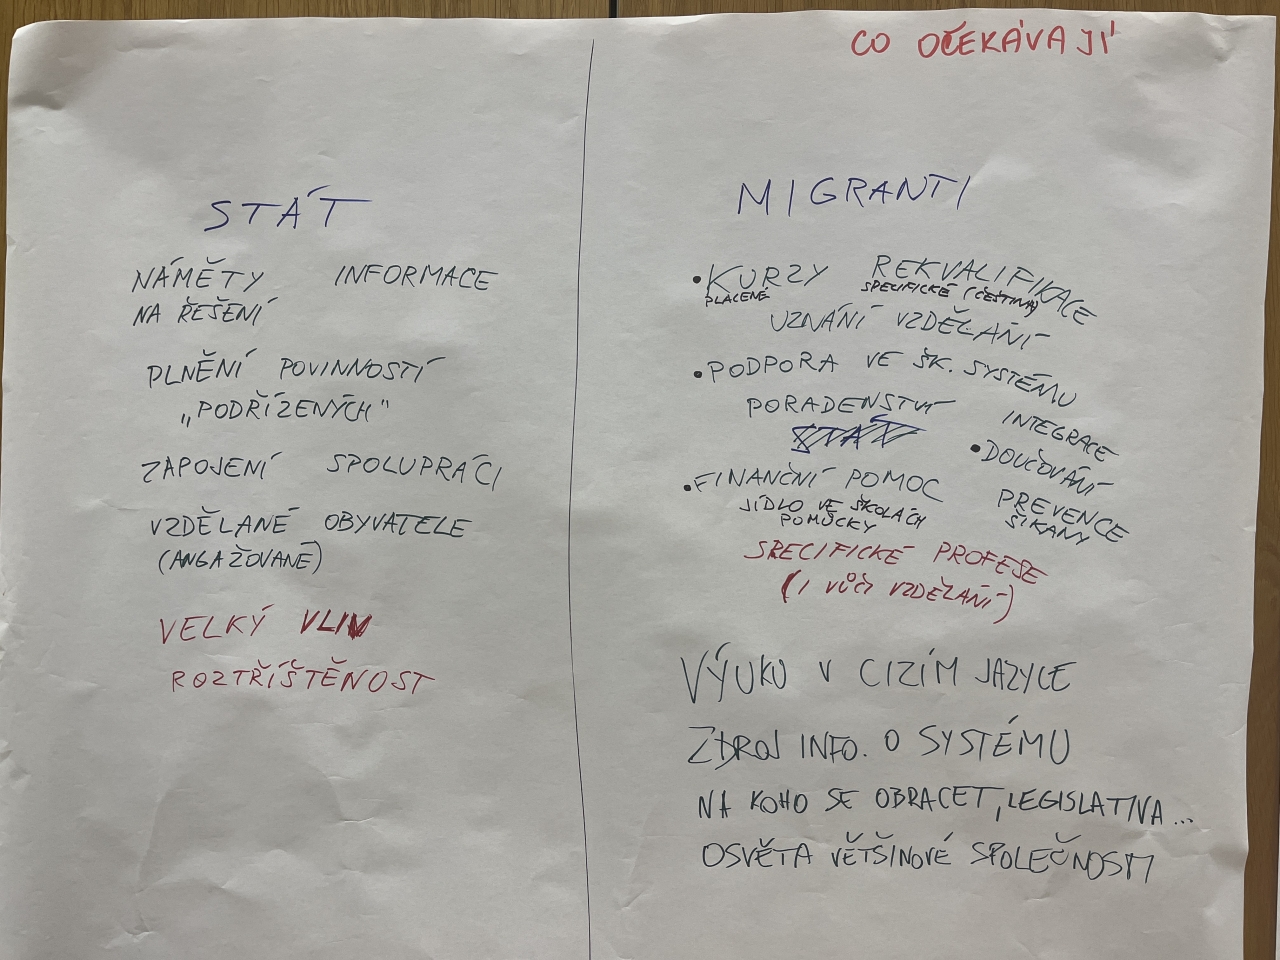 CO OČEKÁVAJÍ
STÁT
NÁMĚTY INFORMACE
NA ŘEŠENÍ
PLNĚNÍ POVINNOSTÍ
„PODŘÍZENÝCH"
ZAPOJENÍ SPOLUPRÁCI
VZDĚLANÉ OBYVATELE
(ANGAŽOVANÉ)
VELKÝ VLIV
ROZTŘÍŠTĚNOST
MIGRANTI
• KURZY REKVALIFIKACE
PLACENÉ SPECIFICKÉ (ČEŠTINA)
UZNÁNÍ VZDĚLÁNÍ
• PODPORA VE ŠK. SYSTÉMU
PORADENSTVÍ
STÁT
INTEGRACE
• DOUČOVÁNÍ
• FINANČNÍ POMOC
JÍDLO VE ŠKOLÁCH
POMŮCKY
PREVENCE
ŠIKANY
SPECIFICKÉ PROFESE
(I VŮČI VZDĚLÁNÍ)
VÝUKU V CIZÍM JAZYCE
ZDROJ INFO. O SYSTÉMU
NA KOHO SE OBRACET, LEGISLATIVA...
OSVĚTA VĚTŠINOVÉ SPOLEČNOSTI